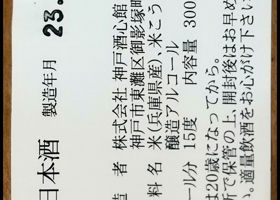 日本酒 製造年月 23.
造 者 株式会社 神戸酒心館
神戸市東灘区御影塚町
料名 米(兵庫県産)、米こう
醸造アルコール
ール分 15度 内容量 300
は20歳になってから。
所で保管の上、開封後はお早め
。適量飲酒をお心がけ下さい